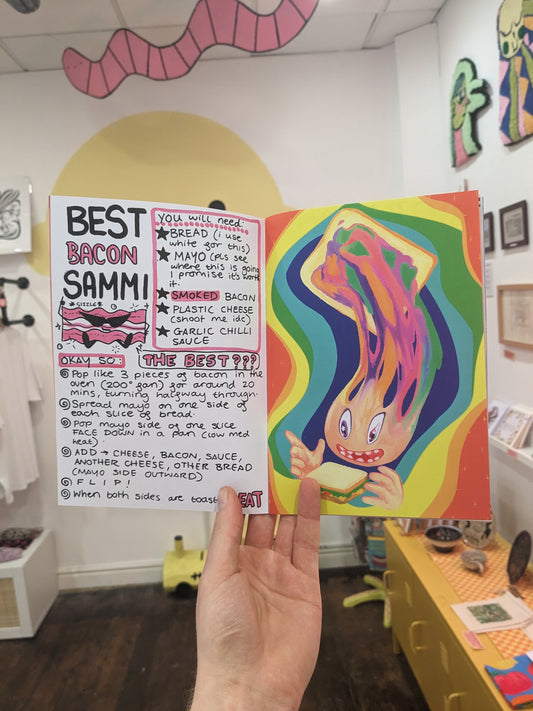 BEST
BACON
SAMMI
SIZZLE
YOU WILL NEED:
BREAD (i use
white for this)
MAYO (pls see
where this is going
I promise it's worth
it.
SMOKED BACON
PLASTIC CHEESE
(shoot me idc)
GARLIC CHILLI
SAUCE
OKAY SO:
THE BEST???
Pop like 3 pieces of bacon in the
oven (200° fan) for around 20
mins, turning halfway through.
Spread mayo on one side of
each slice of bread.
Pop mayo side of one slice
FACE DOWN in a pan (low med
heat).
ADD → CHEESE, BACON, SAUCE,
ANOTHER CHEESE, OTHER BREAD
(MAYO SIDE OUTWARD)
FLIP!
When both sides are toast
EAT